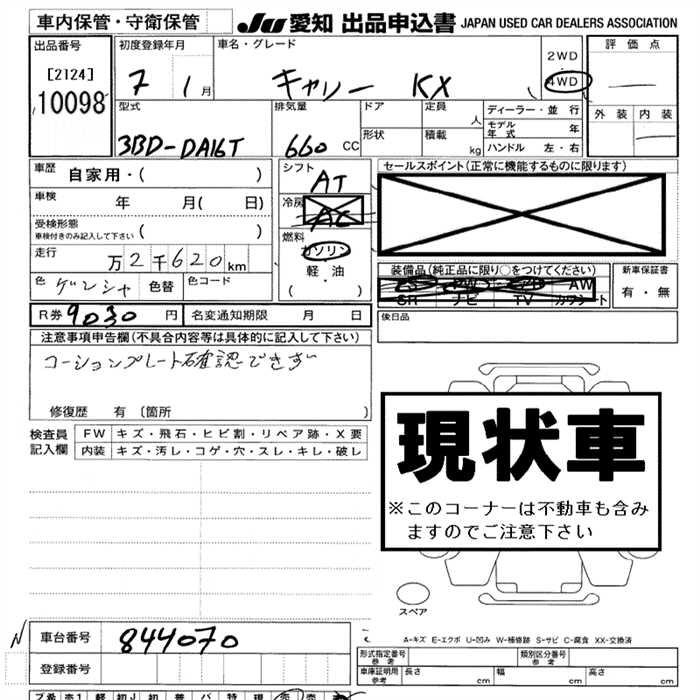 車内保管・守衛保管
JU 愛知 出品申込書 JAPAN USED CAR DEALERS ASSOCIATION
出品番号
[2124]
10098
初度登録年月
7 1月
車名・グレード
キャリー KX
2WD
4WD
評価点
外装 内装
型式
3BD-DA16T
排気量
660 CC
ドア
形状
定員 人
積載 kg
ディーラー・並行
モデル年式 年
ハンドル 左・右
車歴 自家用・( )
車検 年 月( 日)
受検形態
車検付きのみ記入して下さい ( )
走行 万2千620km
色 ゲンシャ 色替 色コード
シフト
AT
冷房
AC
燃料
ガソリン
軽・油
( ・ )
セールスポイント(正常に機能するものに限ります)
装備品(純正品に限り○をつけてください)
PS PW AW
SR ナビ TV カワシート
新車保証書
有・無
後日品
R券 9030 円 名変通知期限 月 日
注意事項申告欄(不具合内容等は具体的に記入して下さい)
コーションプレート確認できず
修復歴 有〔箇所 〕
検査員記入欄
FW キズ・飛石・ヒビ割・リペア跡・X要
内装 キズ・汚レ・コゲ・穴・スレ・キレ・破レ
現状車
※このコーナーは不動車も含み
ますのでご注意下さい
スペア
N 車台番号 844070
登録番号
A-キズ E-エクボ U-凹み W-補修跡 S-サビ C-腐食 XX-交換済
形式指定番号 参考
類別区分番号 参考
車庫証明用 参考 長さ cm 幅 cm 高さ cm